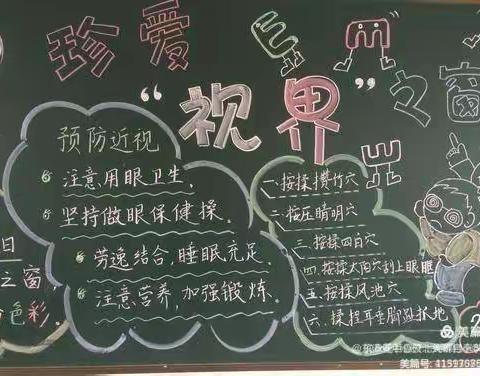 珍爱之窗
“视界”
预防近视
注意用眼卫生.
坚持做眼保健操.
劳逸结合,睡眠充足
注意营养,加强锻炼.
一.按揉攒竹穴
二.按压睛明穴
三.按揉四白穴
四.按揉太阳穴刮上眼眶
五.按揉风池穴
六.揉捏耳垂脚趾抓地
日
之窗
色彩.
美篇
美篇号: